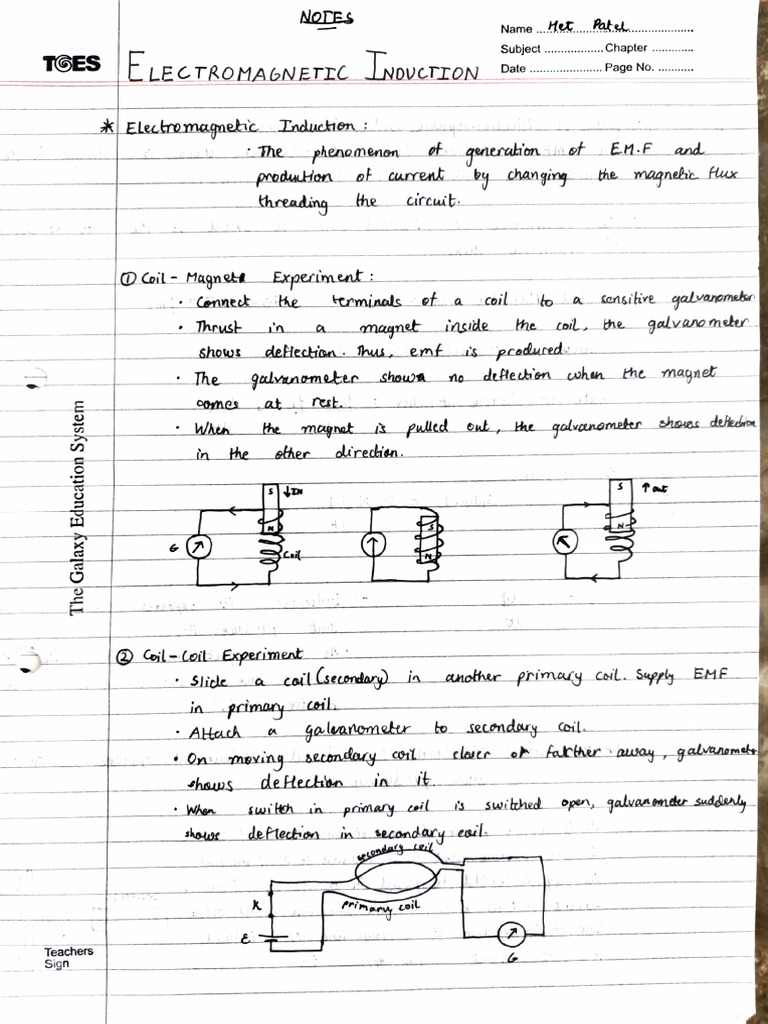 NOTES
Name ... Met Patel ...
Subject .................. Chapter ............
Date ...................... Page No. ............
TGES
ELECTROMAGNETIC INDUCTION
* Electromagnetic Induction :
· The phenomenon of generation of E.M.F and
production of current by changing the magnetic flux
threading the circuit.
① Coil - Magnet Experiment :
· Connect the terminals of a coil to a sensitive galvanometer
· Thrust in a magnet inside the coil, the galvanometer
shows deflection. Thus, emf is produced.
· The galvanometer shows no deflection when the magnet
comes at rest.
· When the magnet is pulled out, the galvanometer shows deflection
in the other direction.
S ↓IN
N
G
Coil
S
N
S ↑out
N
The Galaxy Education System
② Coil-Coil Experiment
· Slide a coil (secondary) in another primary coil. Supply EMF
in primary coil.
· Attach a galvanometer to secondary coil.
· On moving secondary coil closer or farther away, galvanometer
shows deflection in it.
· When switch in primary coil is switched open, galvanometer suddenly
shows deflection in secondary coil.
secondary coil
K
primary coil
E
G
Teachers
Sign